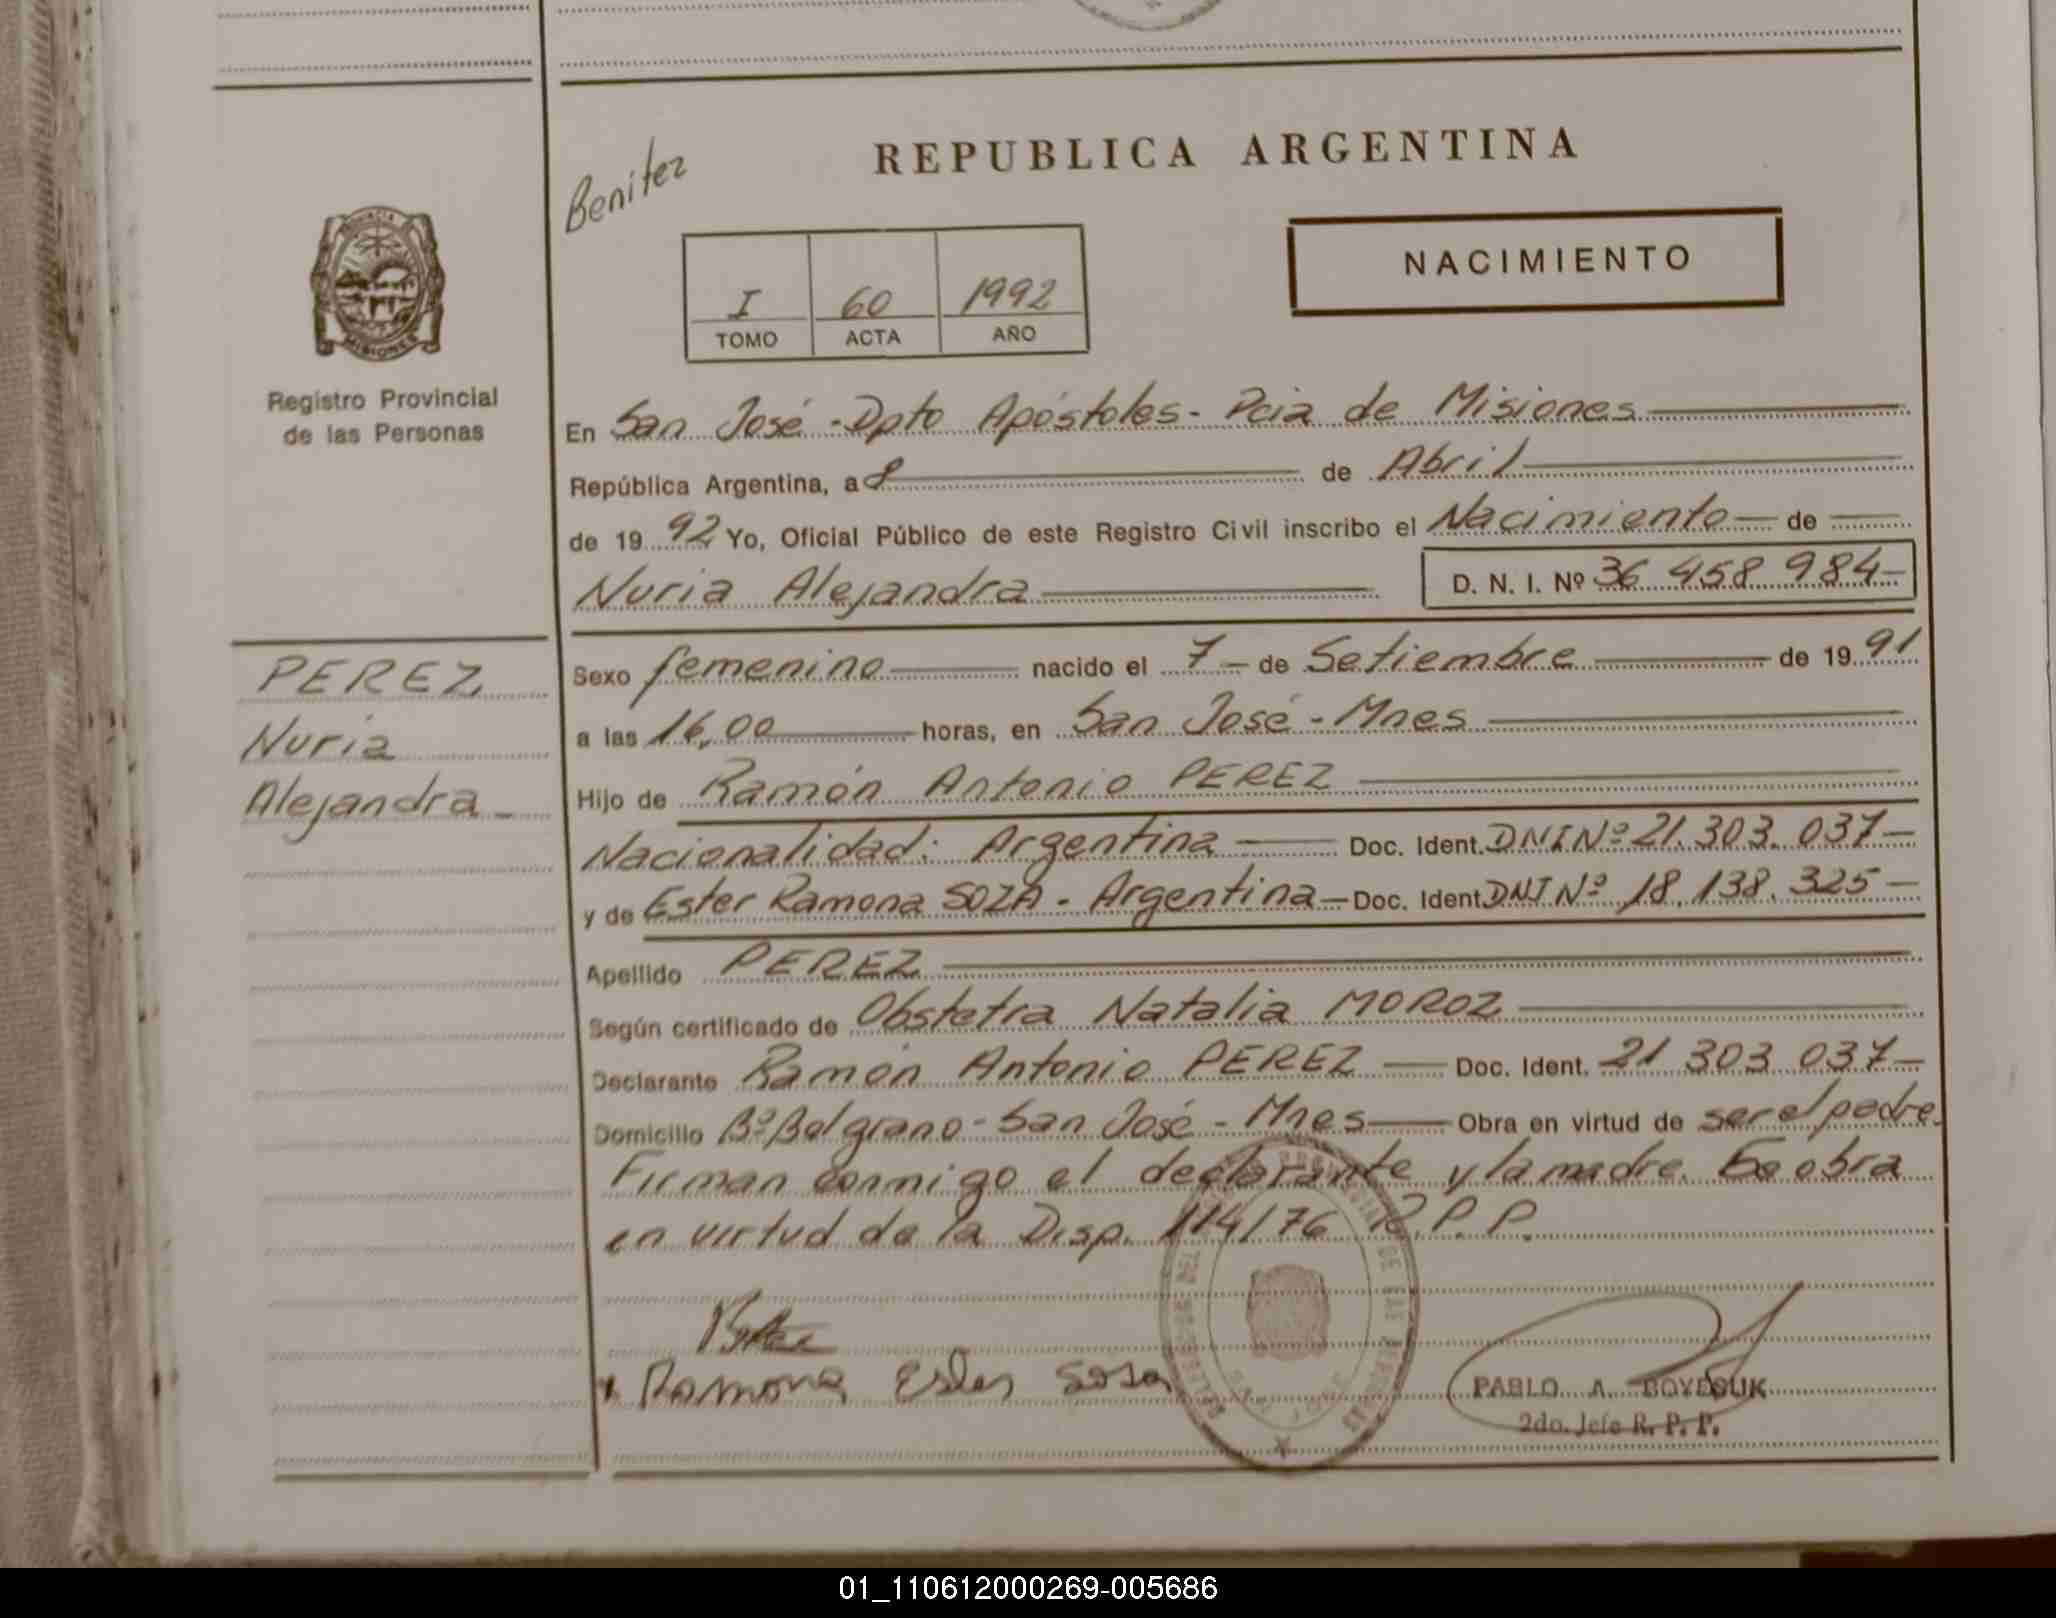 REPUBLICA ARGENTINA
Benitez
NACIMIENTO
I 60 1992
TOMO ACTA AÑO
MISIONES
Registro Provincial
de las Personas
En San José - Dpto Apóstoles - Pcia de Misiones
República Argentina, a 8 de Abril
de 1992 Yo, Oficial Público de este Registro Civil inscribo el Nacimiento de
Nuria Alejandra D. N. I. Nº 36 458 984
PEREZ
Nuria
Alejandra
Sexo femenino nacido el 7 de Setiembre de 1991
a las 16,00 horas, en San José - Mnes
Hijo de Ramón Antonio PEREZ
Nacionalidad: Argentina Doc. Ident. DNI Nº 21.303.037
y de Ester Ramona SOZA - Argentina Doc. Ident DNI Nº 18.138.325
Apellido PEREZ
Según certificado de Obstetra Natalia MOROZ
Declarante Ramón Antonio PEREZ Doc. Ident. 21 303 037
Domicilio Bº Belgrano - San José - Mnes Obra en virtud de ser el padre.
Firman conmigo el declarante y la madre. Se obra
en virtud de la Disp. 114/76 R.P.P.
Ramona Ester Sosa
PABLO A. BOYESUK
2do. Jefe R. P. P.
01_110612000269-005686